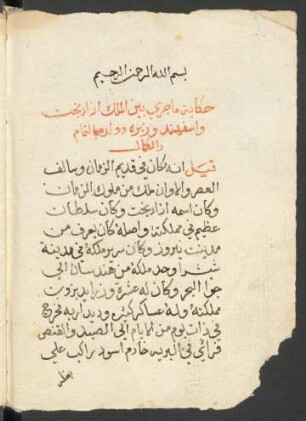 بسم الله الرحمن الرحيم
حكاية ماجري بين الملك ازادبخت
واسفهند وزيره وولدهما بالتمام
والكمال
قيل انه كان في قديم الزمان وسالف
العصر والاوان ملك من ملوك الزمان
وكان اسمه ازادبخت وكان سلطان
عظيم في مملكته واصله كان يعرف من
مدينت نيروز وكان سرير ملكه في مدينة
وحد ملكه من هندستان الي
جوا البحر وكان له عشرة وزرا يدبرون
مملكته وله عساكر كثيره ودبدابه فخرج
في ذات يوم من الايام الي الصيد والقنص
فراي في البريه خادم اسود راكب علي